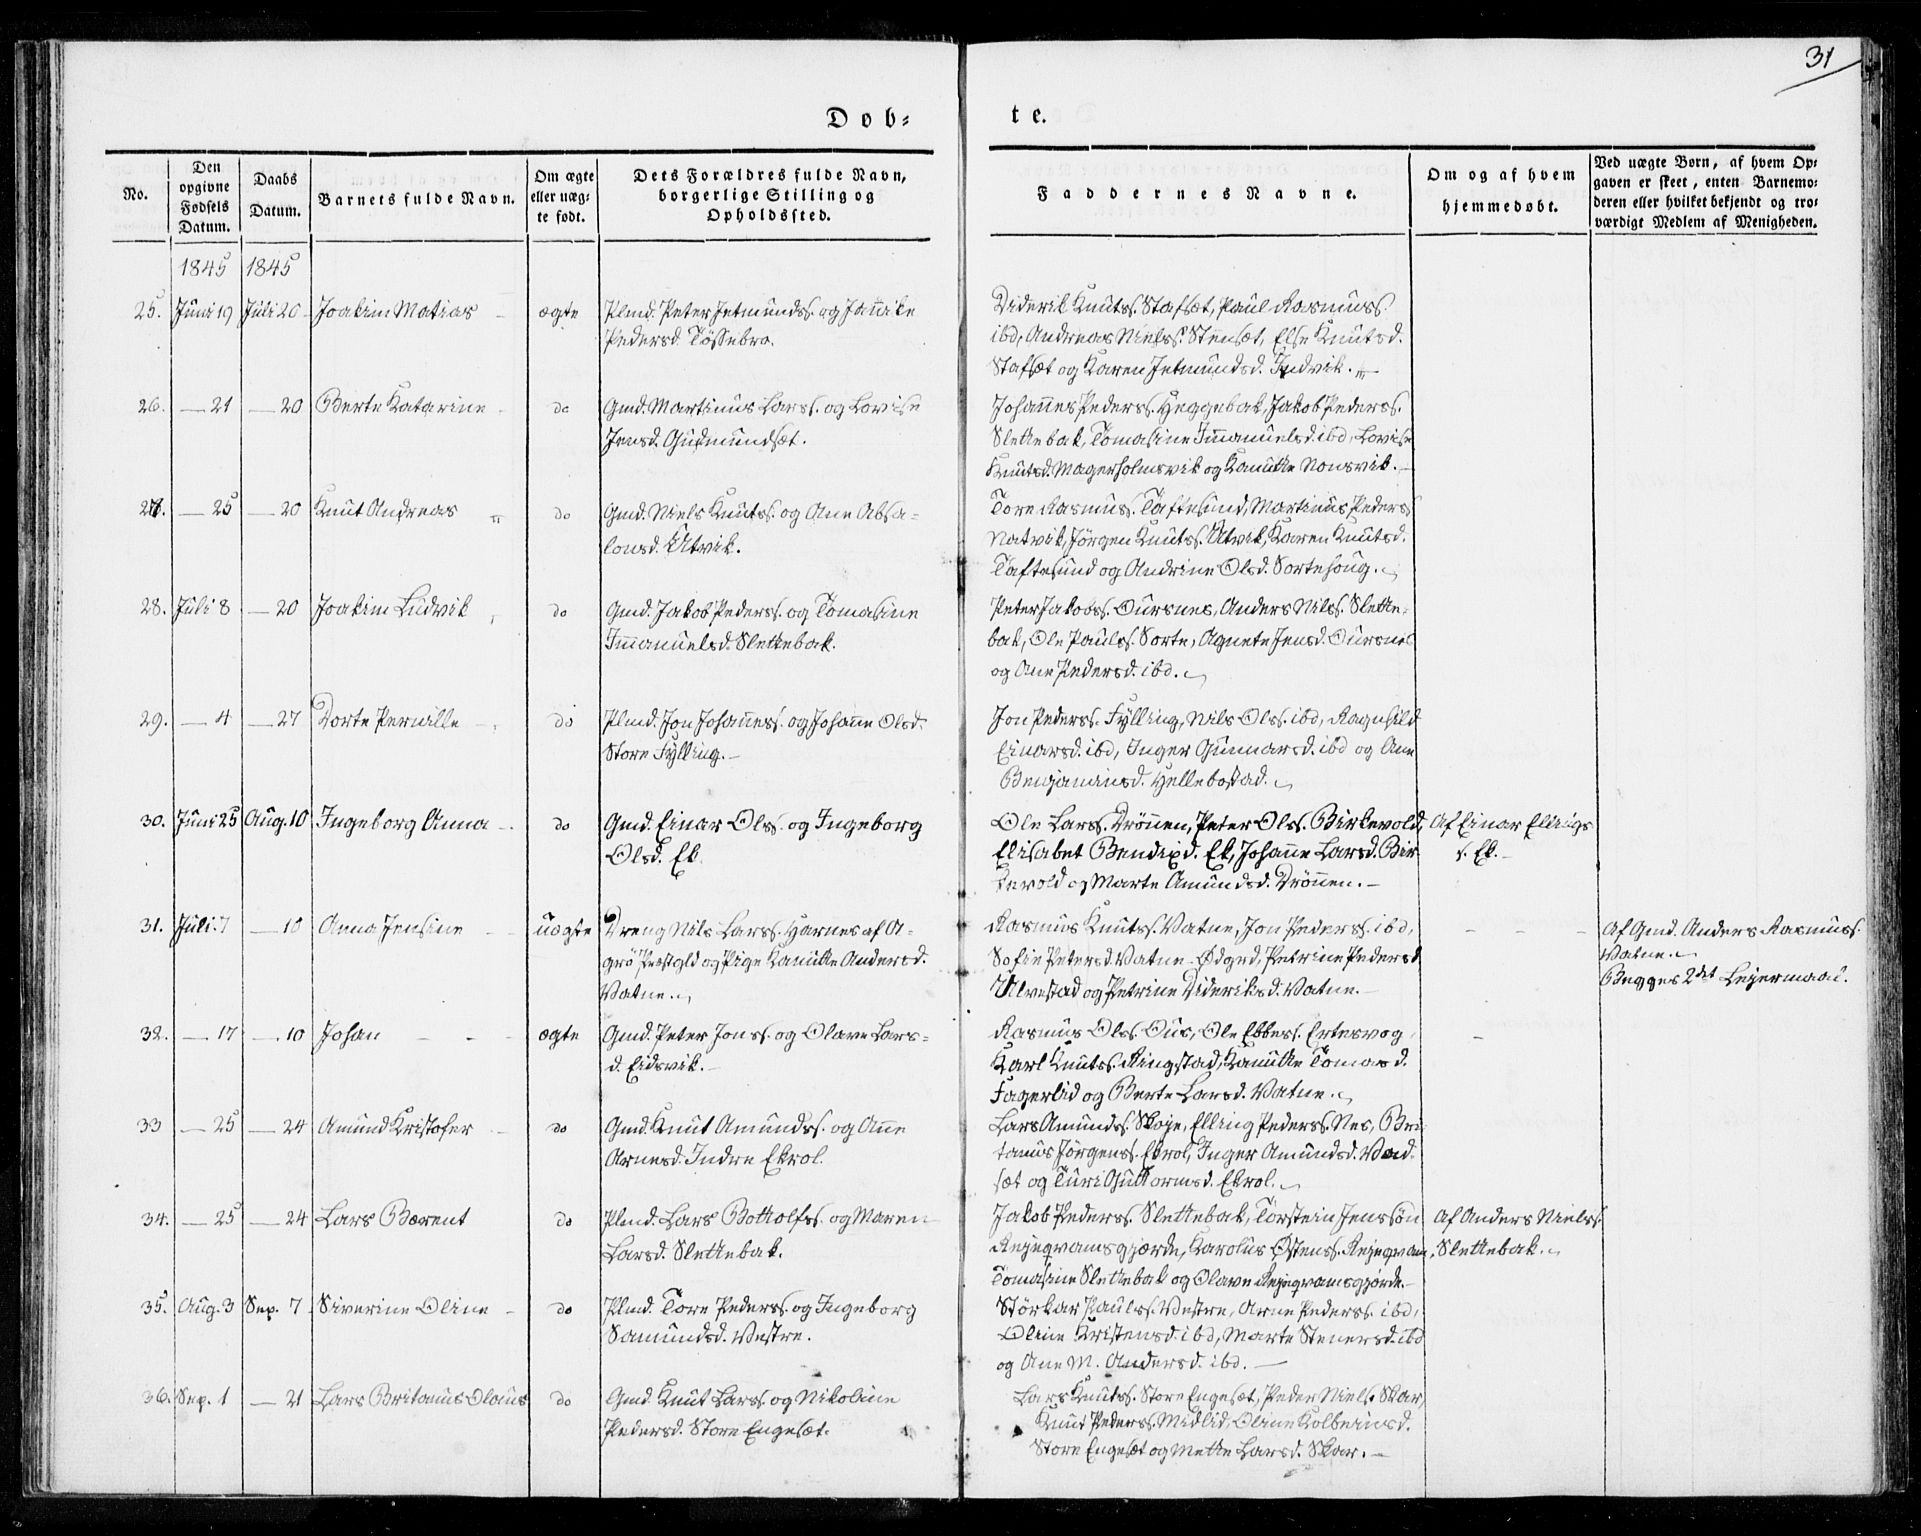 31
Døb-
te.
No.
Den opgivne Fødsels Datum.
Daabs Datum.
Barnets fulde Navn.
Om ægte eller uæg-te født.
Dets Forældres fulde Navn, borgerlige Stilling og Opholdssted.
Faddernes Navne.
Om og af hvem hjemmedøbt.
Ved uægte Børn, af hvem Op-gaven er skeet, enten Barnemo-deren eller hvilket bekjendt og tro-værdigt Medlem af Menigheden.
1845 1845
25. Juni 19 Juli 20 Joakim Matias ægte Plmd. Peter Jetmundss. og Jañike
Pedersd. Tøssebro.
Diderik Knutss. Stafsæt, Paul Rasmuss.
ibd, Andreas Nielss. Stensæt, Else Knutsd.
Stafsæt og Karen Jetmundsd. Indvik.
26. — 21 — 20 Berte Katarine do Gmd. Martinus Larss. og Lovise
Jensd. Gudmundsæt.
Johañes Pederss. Heggebak, Jakob Pederss.
Slettebak, Tomasine Im̃anuelsd. ibd, Lovise
Knutsd. Magerholmsvik og Kanutte Nonsvik.
27. — 25 — 20 Knut Andreas do Gmd. Niels Knutss. og Ane Absa-
lonsd. Utvik.
Tore Rasmuss. Taftesund, Martinus Pederss
Natvik, Jørgen Knutss. Utvik, Karen Knutsd.
Taftesund og Andrine Olsd. Sortehoug.
28. Juli 8 — 20 Joakim Ludvik do Gmd. Jakob Pederss. og Tomasine
Im̃anuelsd. Slettebak.
Peter Jakobss. Oursnes, Anders Nilss. Slette-
bak, Ole Paulss. Sorte, Agnete Jensd. Oursnes
og Ane Pedersd. ibd.
29. — 4 — 27 Dorte Pernille do Plmd. Jon Johañess. og Johañe Olsd.
Store Fylling.
Jon Pederss. Fylling, Nils Olss. ibd, Ragnhild
Einarsd. ibd, Inger Gunnarsd. ibd og Ane
Benjaminsd. Hellebostad.
30. Juni 25 Aug. 10 Ingeborg Anna do Gmd. Einar Olss. og Ingeborg
Olsd. Ek.
Ole Larss. Drønen, Peter Olss. Birkevold,
Elisabet Bendixd. Ek, Johañe Larsd. Bir-
kevold og Marte Amundsd. Drønen.
Af Einar Ellings
s. Ek.
31. Juli. 7 — 10 Anna Jensine uægte Dreng Nils Larss. Harnes af A-
grø Præstgld og Pige Kanutte Andersd.
Vatne.
Rasmus Knutss. Vatne, Jon Pederss. ibd,
Sofie Petersd. Vatne Ødgrd, Petrine Pedersd
Ulvestad og Petrine Dideriksd. Vatne.
Af Gmd. Anders Rasmuss.
Vatne.
Begges 2det Lejermaal.
32. — 17 — 10 Johan ægte Gmd. Peter Jonss. og Olave Lars-
d. Eidsvik.
Rasmus Olss. Ous, Ole Ebbess. Ertesvog
Karl Knutss. Ringstad, Kanutte Tomasd.
Fagerlid og Berte Larsd. Vatne.
33 — 25 — 24 Amund Kristofer do Gmd. Knut Amundss. og Añe
Arnesd. Indre Ekrol.
Lars Amundss. Skoje, Elling Pederss. Nes, Bri
tanus Jørgenss. Ekrol, Inger Amundsd. Vad-
sæt og Turi Guttormsd. Ekrol.
34. — 25 — 24 Lars Bærent do Plmd. Lars Bottolfss. og Maren
Larsd. Slettebak.
Jakob Pederss. Slettebak, Torstein Jenssøn
Rejeqvamsgjærde, Karolus Østenss. Rejeqvam,
Tomasine Slettebak og Olave Rejeqvamsgjørde.
Af Anders Nielss.
Slettebak.
35. Aug. 3 Sep. 7 Siverine Oline do Plmd. Tore Pederss. og Ingeborg
Samundsd. Vestre.
Størkar Paulss. Vestre, Arne Pederss. ibd,
Oline Kristensd. ibd, Marte Stenersd. ibd
og Ane M. Andersd. ibd.
36. Sep. 1 — 21 Lars Britanus Olaus do Gmd. Knut Larss. og Nikoline
Pedersd. Store Engesæt.
Lars Knutss. Store Engesæt, Peder Niels Skar,
Knut Pederss. Midlid, Oline Kolbeinsd.
Store Engesæt og Mette Larsd. Skar.